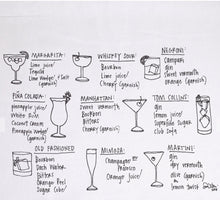 MARGARITA:
Lime juice/
Tequila
Lime Wedge/ + Salt
(garnish)
WHISKEY SOUR:
Bourbon
Lime juice/
Cherry (garnish)
NEGRONI:
Campari
gin
Sweet vermouth
Orange (garnish)
PIÑA COLADA:
pineapple juice/
White Rum
Coconut Cream
Pineapple Wedge/
(garnish)
MANHATTAN:
Sweet Vermouth
Bourbon
Bitters
Cherry (garnish)
TOM COLLINS:
gin
Lemon juice/
Superfine Sugar
Club Soda
OLD FASHIONED
Bourbon
Bitters
Orange Peel
Sugar Cube/
MIMOSA:
Champagne or
Prosecco
Orange Juice/
MARTINI:
gin
dry vermouth
olive (garnish)
lemon twist